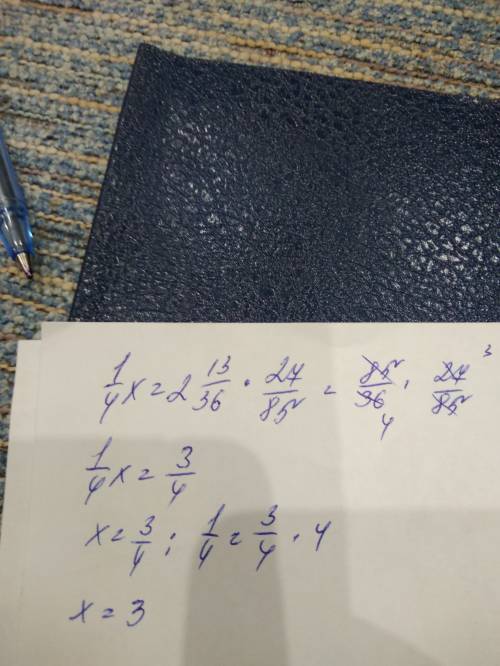 1/4 x = 2 13/36 · 27/85 = 85/36 · 27/85 4 3
1/4 x = 3/4
x = 3/4 : 1/4 = 3/4 · 4
x = 3